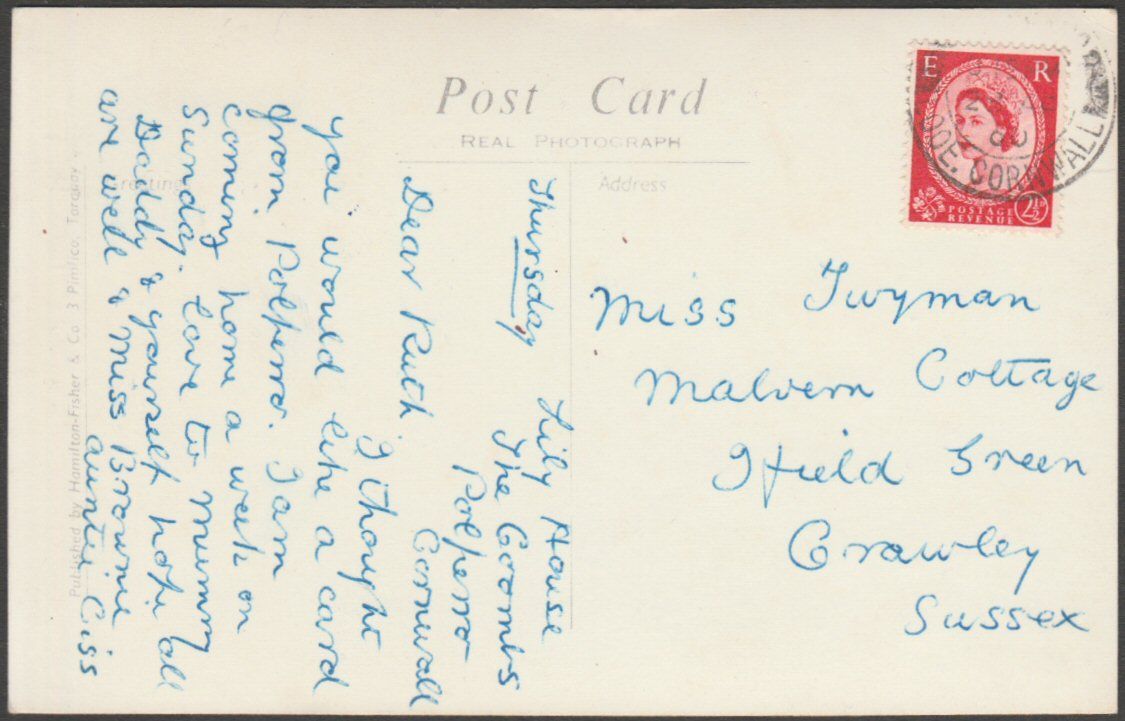 Post Card
REAL PHOTOGRAPH
Greetings
Address
Published by Hamilton-Fisher & Co 3 Pimlico, Torquay
E R
POSTAGE
REVENUE
2½D
LOOE. CORNWALL
Lily House
The Coombs
Polperro
Cornwall
Thursday
Dear Ruth
I thought
you would like a card
from Polperro. I am
coming home a week on
Sunday. Love to Mummy
Daddy & yourself hope all
are well & Miss Brownie
Auntie Ciss
Miss Twyman
Malvern Cottage
Ifield Green
Crawley
Sussex